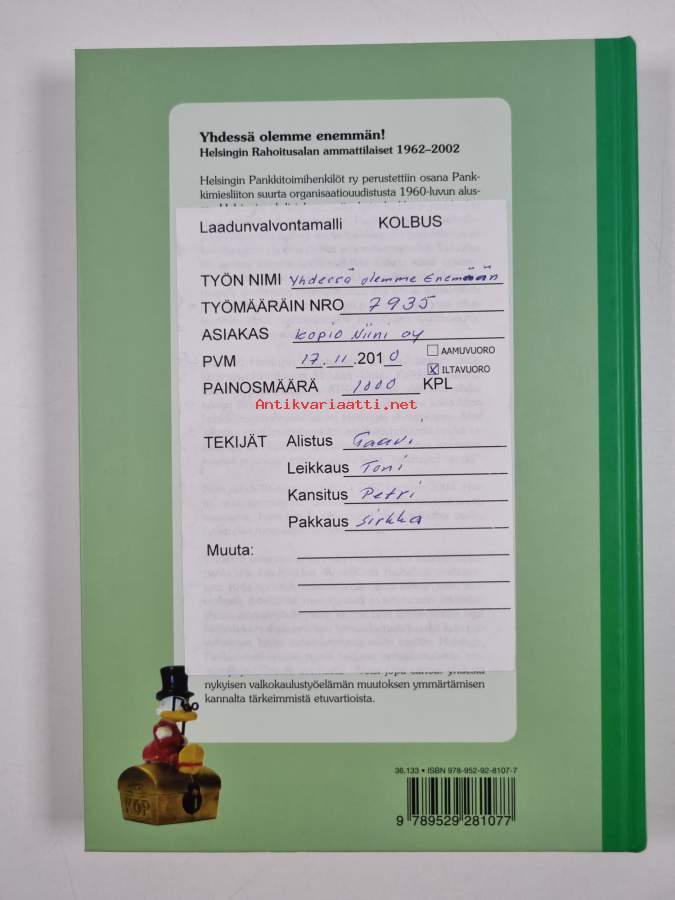 Yhdessä olemme enemmän!
Helsingin Rahoitusalan ammattilaiset 1962–2002
Helsingin Pankkitoimihenkilöt ry perustettiin osana Pank-
kimiesliiton suurta organisaatiouudistusta 1960-luvun alus-
Laadunvalvontamalli KOLBUS
TYÖN NIMI Yhdessä olemme Enemmän
TYÖMÄÄRÄIN NRO 7935
ASIAKAS Kopio Niini oy
PVM 17.11.2010 AAMUVURO
X ILTAVUORO
PAINOSMÄÄRÄ 1000 KPL
Antikvariaatti.net
TEKIJÄT Alistus Taavi
Leikkaus Toni
Kansitus Petri
Pakkaus Sirkka
Muuta:
nykyisen valkokaulustyöelämän muutoksen ymmärtämisen
kannalta tärkeimmistä etuvartioista.
KOP
36.133 • ISBN 978-952-92-8107-7
9 789529 281077